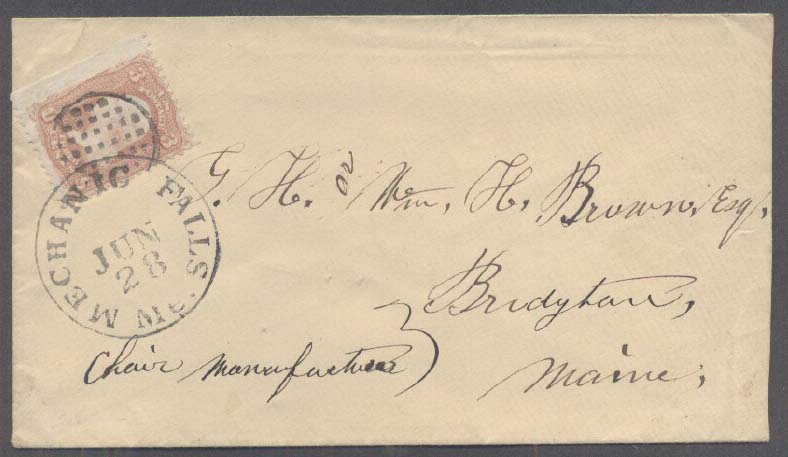 MECHANIC FALLS Me.
JUN
28
G. H. or Wm. H. Brown, Esq.
Bridgton,
Maine.
Chair manufacturer